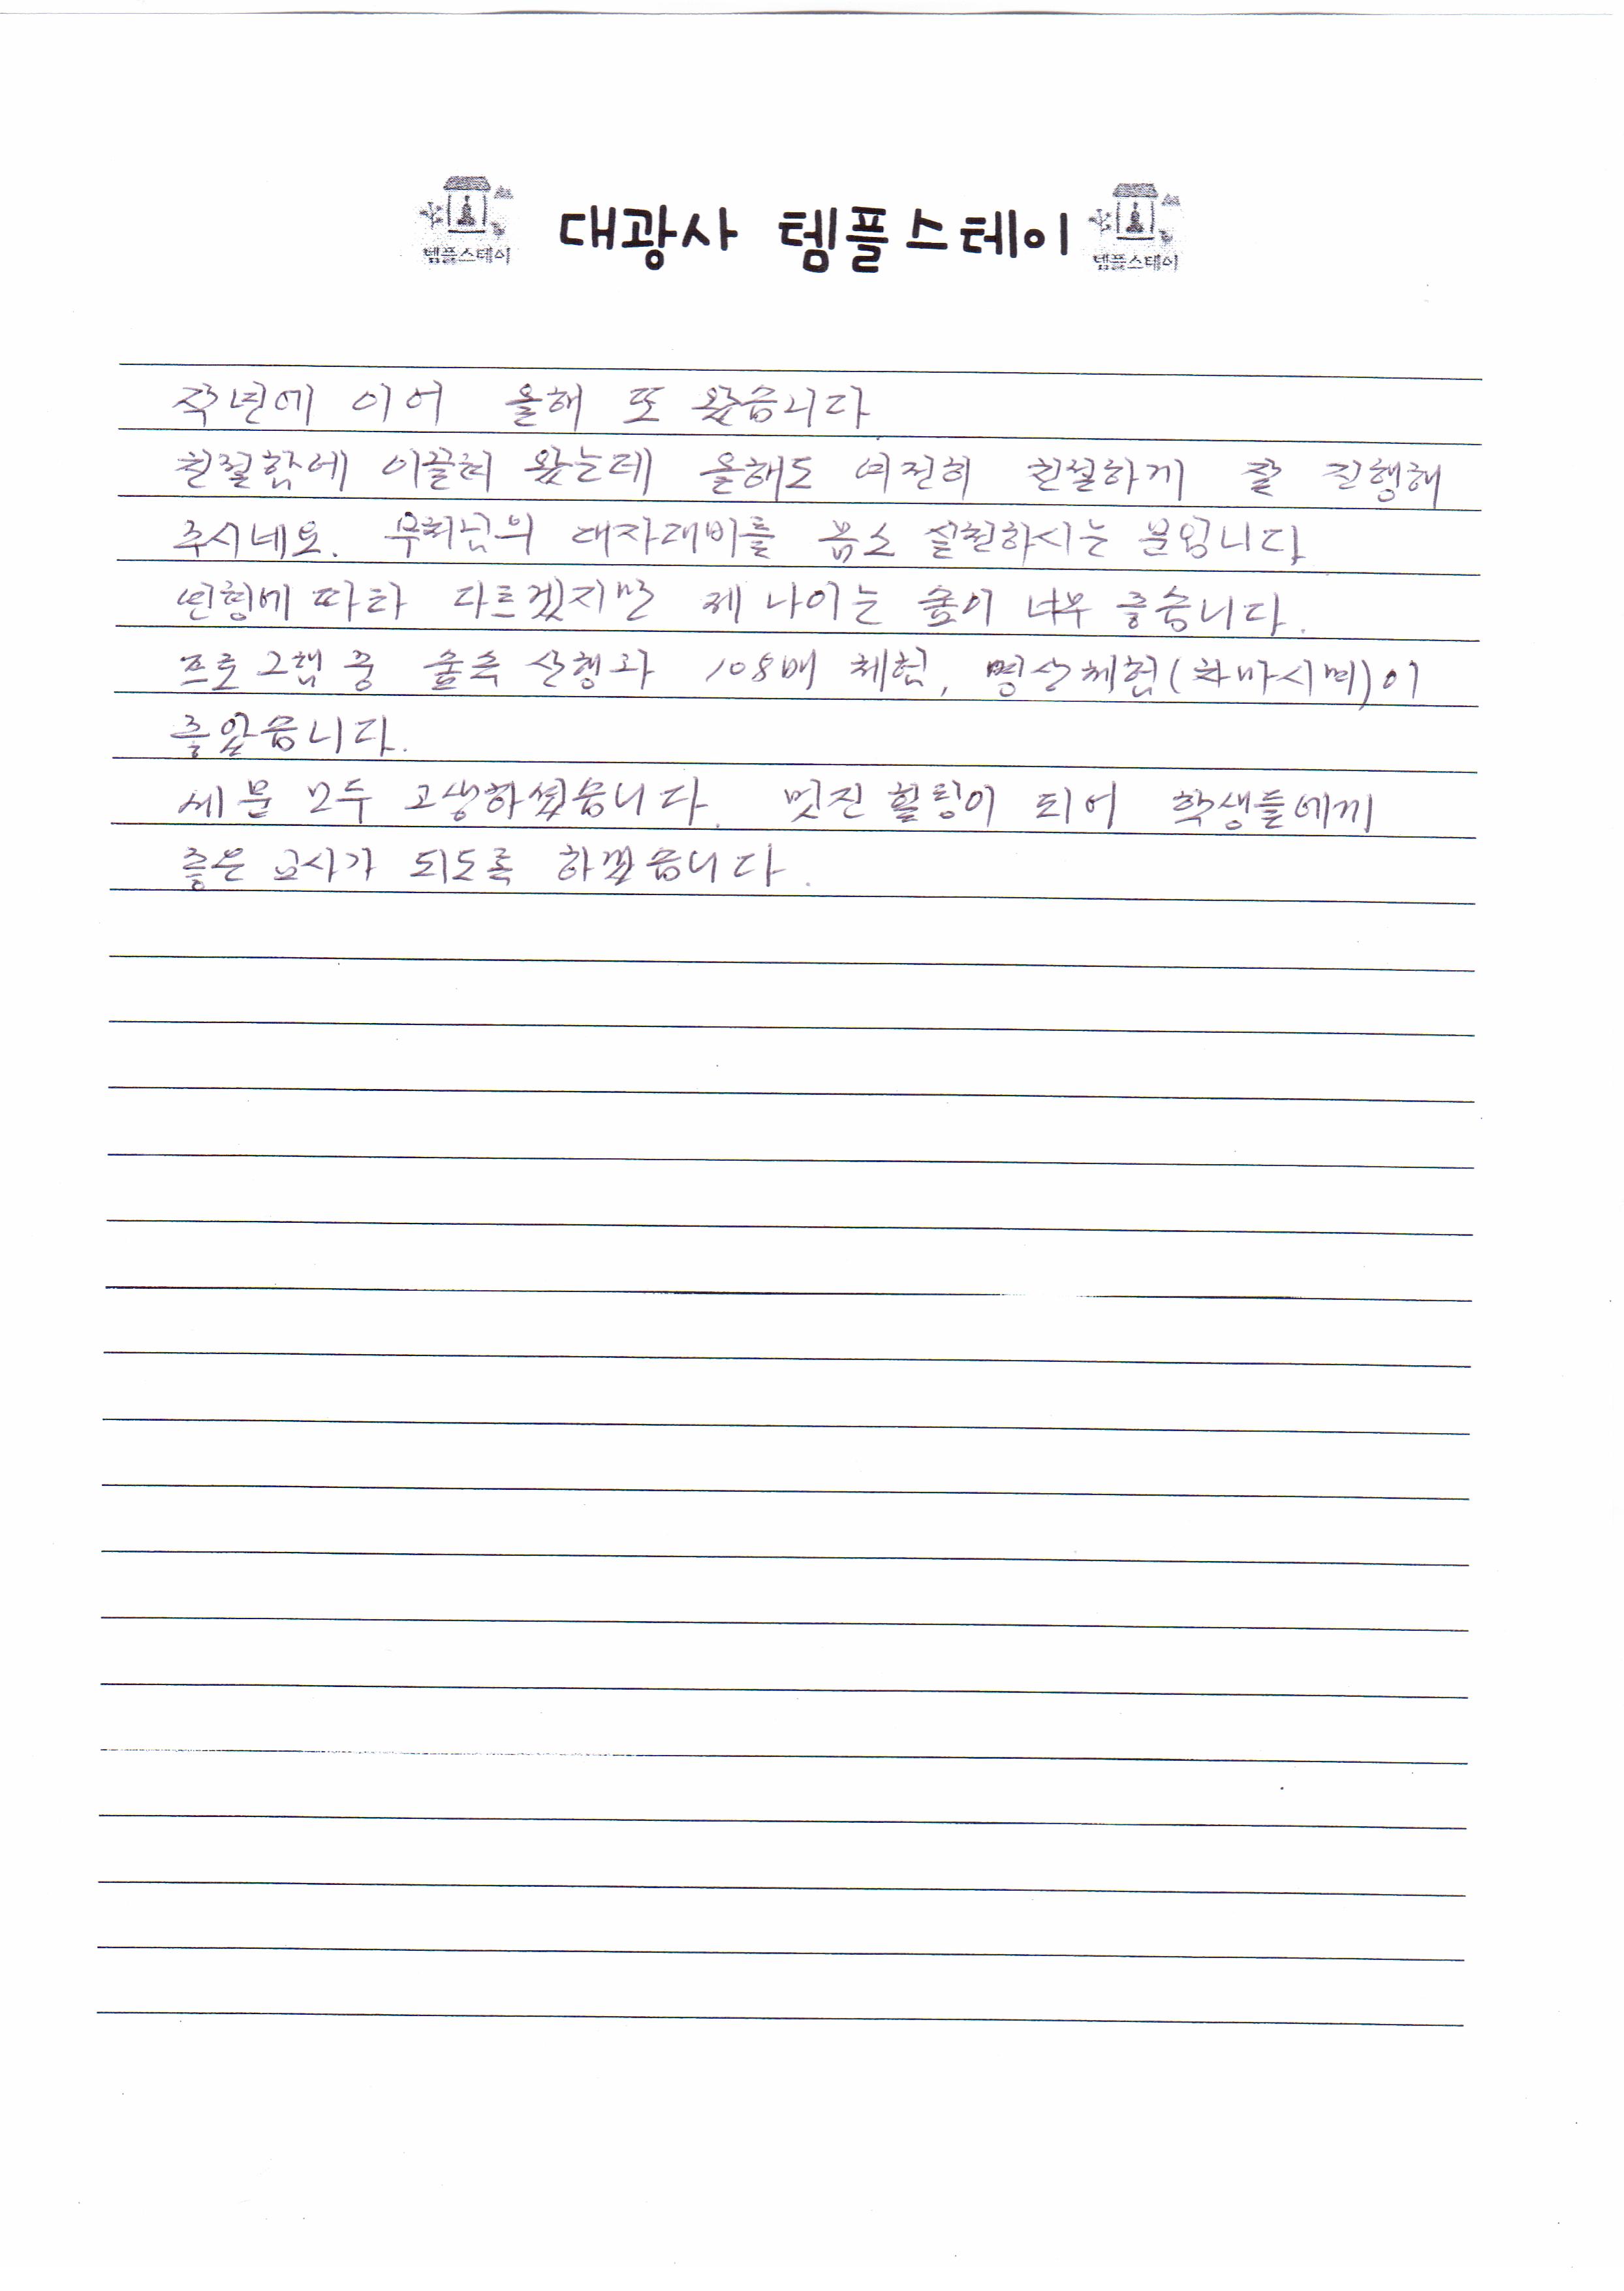 템플스테이 대광사 템플스테이 템플스테이
작년에 이어 올해 또 왔습니다
친절함에 이끌려 왔는데 올해도 여전히 친절하게 잘 진행해
주시네요. 부처님의 대자대비를 몸소 실천하시는 분입니다
연령에 따라 다르겠지만 제 나이는 숲이 너무 좋습니다.
프로그램 중 숲속 산행과 108배 체험, 명상체험(차마시며)이
좋았습니다.
세분 모두 고생하셨습니다. 멋진 힐링이 되어 학생들에게
좋은 교사가 되도록 하겠습니다.